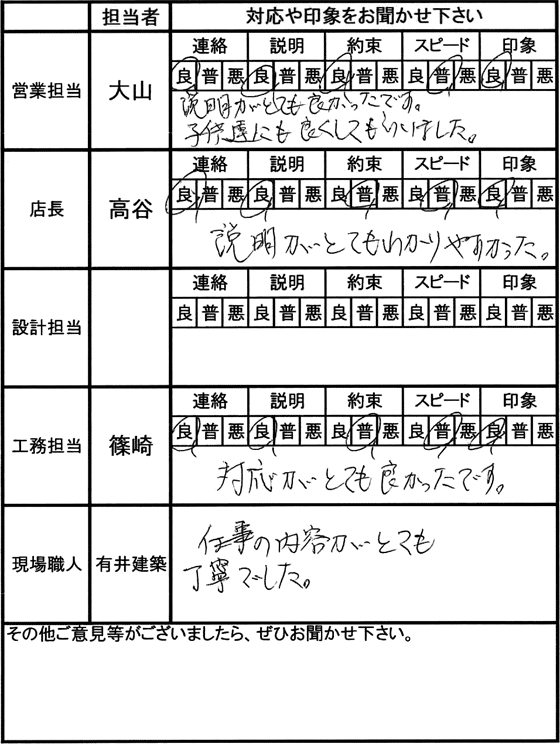 担当者 対応や印象をお聞かせ下さい
営業担当 大山
連絡 説明 約束 スピード 印象
良 普 悪 良 普 悪 良 普 悪 良 普 悪 良 普 悪
説明がとても良かったです。
子供達にも良くしてもらいました。
店長 高谷
連絡 説明 約束 スピード 印象
良 普 悪 良 普 悪 良 普 悪 良 普 悪 良 普 悪
説明がとてもわかりやすかった。
設計担当
連絡 説明 約束 スピード 印象
良 普 悪 良 普 悪 良 普 悪 良 普 悪 良 普 悪
工務担当 篠崎
連絡 説明 約束 スピード 印象
良 普 悪 良 普 悪 良 普 悪 良 普 悪 良 普 悪
対応がとても良かったです。
現場職人 有井建築
仕事の内容がとても
丁寧でした。
その他ご意見等がございましたら、ぜひお聞かせ下さい。